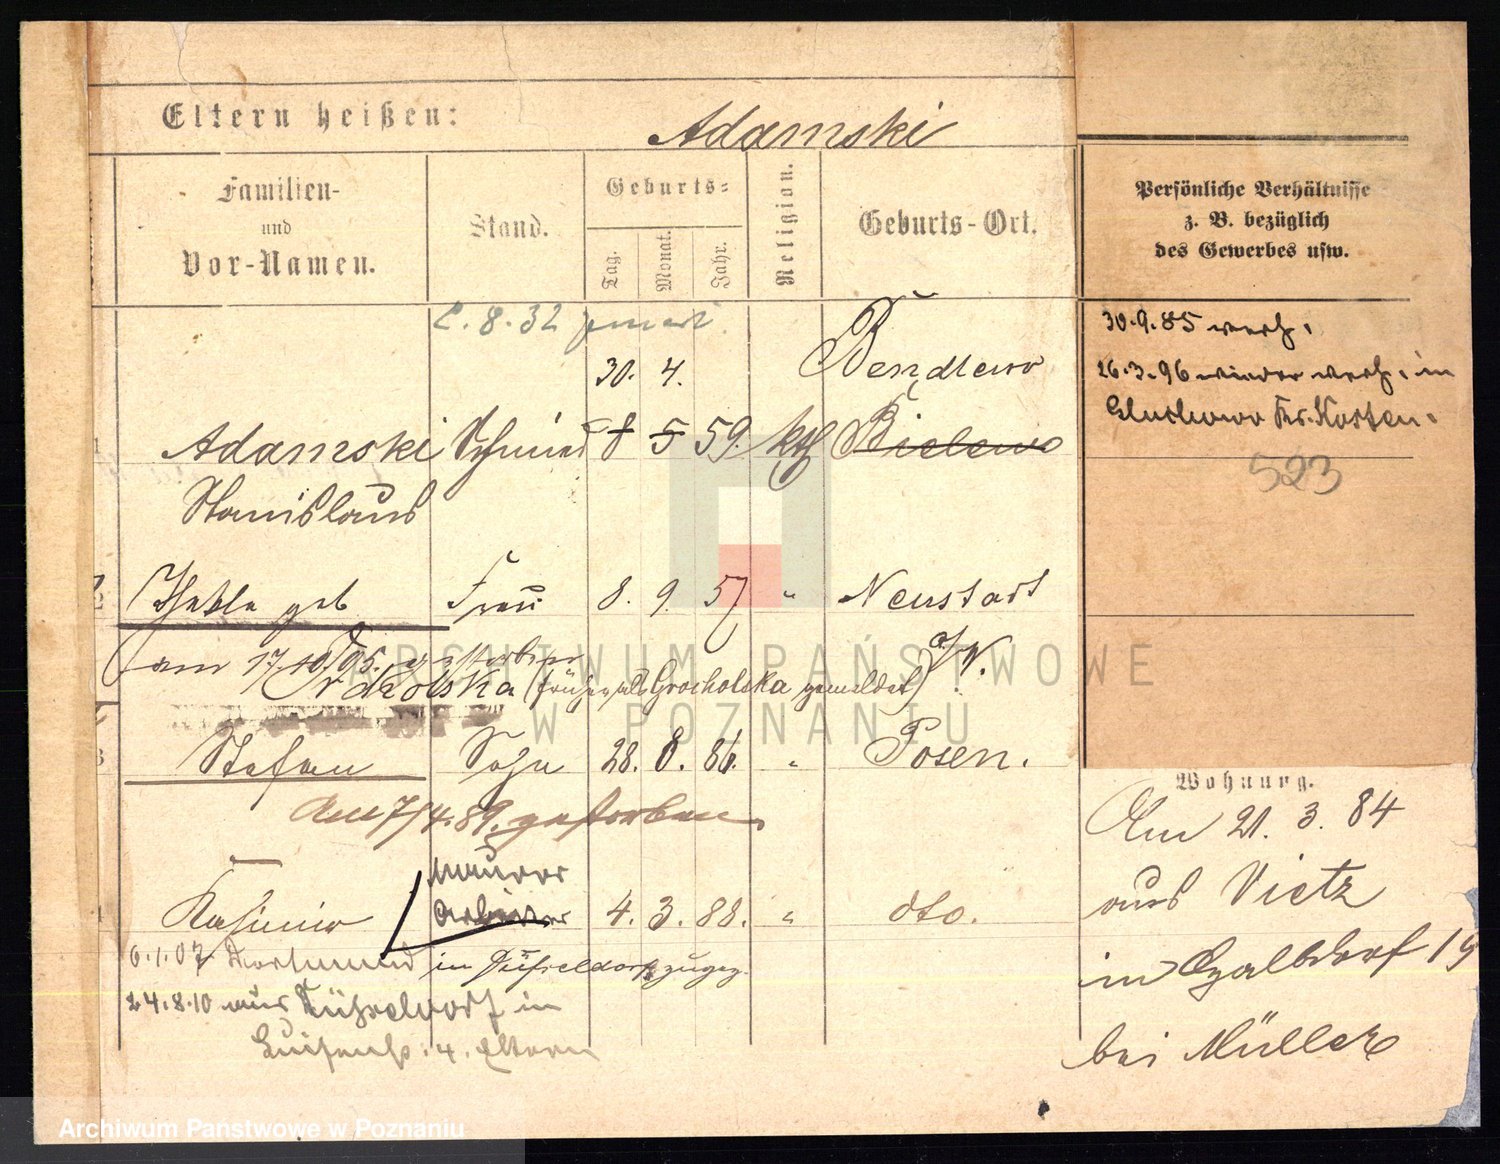 Eltern heißen:
Adamski
Familien-
und
Vor-Namen.
Stand.
Geburts=
Tag.
Monat.
Jahr.
Religion.
Geburts-Ort.
Persönliche Verhältnisse
z. B. bezüglich
des Gewerbes usw.
8.32
30. 4. Bendlewo
30.9.85 verh.
26.3.96 wieder verh. in
Gluchowo Kr. Kosten.
Adamski Schmied 8 5 59. kth Bielewo
523
Stanislaus
Thekla geb Frau 8. 9. 57 " Neustadt
a/W.
am 17.10.95. gestorben
(früher als Grocholska gemeldet)
3 Stefan Sohn 28. 8. 86. " Posen.
Am 7/4.89. gestorben
Wohnung.
Am 21. 3. 84
aus Vietz
in 19
bei Müller
Maurer
4 Kasimir Arbeiter 4. 3. 88. " dto.
6.1.07 Dortmund in Düsseldorf zugez.
24.8.10 aus Düsseldorf in
Luisenstr. 4. Eltern
ARCHIWUM PAŃSTWOWE
W POZNANIU
Archiwum Państwowe w Poznaniu